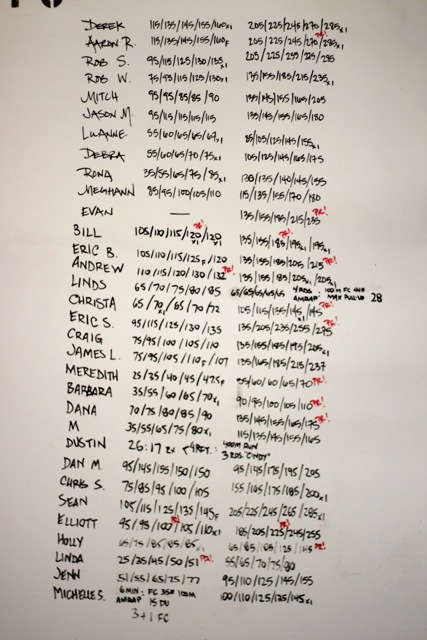 DEREK 115/135/145/155/160x1 205/225/245/270/285x1
AARON R. 115/135/145/155/160F 205/225/245/270/285x1
ROB S. 95/115/125/130/135x1 205/225/255/275/295
ROB W. 75/95/115/125/130x1 135/155/185/215/235x1
MITCH 95/95/85/85/90 135/145/155/165/205
JASON M. 95/115/115/115/115 135/145/155/165/180
LUANNE 55/60/65/65/67x1 85/105/125/145/155x1
DEBRA 55/60/70/75x1 105/125/145/165/175
RONA 35/55/65/75/85x1 130/135/140/145/155
MEGHANN 85/95/100/105/110 115/135/155/170/180
EVAN — 135/155/185/215/235 PR!
BILL 105/110/115/120/120 PR! 135/155/185/195x1/195x1 PR!
ERIC B. 105/110/115/125F/120 135/155/185/205/215 PR!
ANDREW 110/115/120/130/132 PR! 135/155/185/205x1/205x1
LINDS 65/70/75/80/85 65/65/65/65/65 4 RDS: 100m FC 44# AMRAP MAX PULLUP 28
CHRISTA 65/70x1/65/70/72 105/115/135/145x1/145 PR!
ERIC S. 95/115/125/130/135 135/205/235/255/275 PR!
CRAIG 75/95/100/105/110 135/155/185/195/205x1
JAMES L. 75/95/105/110F/107 135/165/185/215/237
MEREDITH 25/35/40/45/47.5F 55/60/60/65/70 PR!
BARBARA 35/55/60/65/70x1 90/95/100/105/110 PR!
DANA 70/75/80/85/90 135/145/155/165/175 PR!
M 35/55/65/75/80x1 115/135/145/155/165
DUSTIN 26:17 RX 4 RFT: 400M RUN 3 RDS "CINDY"
DAN M. 95/145/155/150/150 95/145/175/195/205
CHRIS S. 75/85/95/100/105 155/165/175/185/200x1
SEAN 105/115/125/135/145F 205/225/245/265/285x1
ELLIOTT 95/95/100/105/110x1 PR! 185/205/225/245/255 PR!
HOLLY 65/75/85/85/85x1 65/85/105/125/145 PR!
LINDA 25/35/45/50/51 PR! 55/65/70/75/80
JENN 51/55/65/75/77 95/110/125/145/155
MICHELLE S. 6 MIN: FC 35# 100M AMRAP 15 DU 100/110/125/135/145x1
3+1 FC